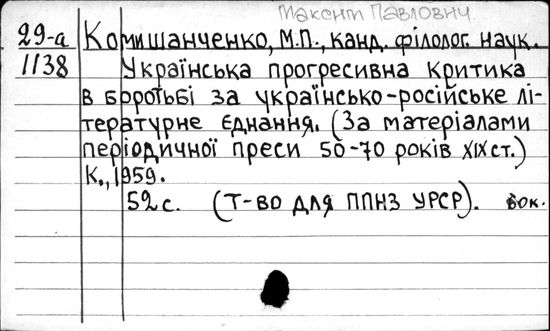 Максим Павлович
29-а Комишанченко, М.П., канд. філолог. наук.
1138 Українська прогресивна критика
в боротьбі за українсько-російське лі-
тературне єднання. (За матеріалами
періодичної преси 50-70 років XIX ст.)
К., 1959.
52 с. (Т-во для ППНЗ УРСР). вок.